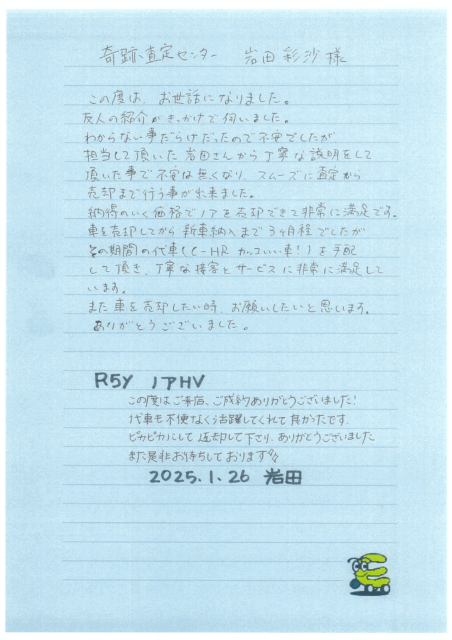 奇跡査定センター 岩田彩沙様
この度は、お世話になりました。
友人の紹介がきっかけで伺いました。
わからない事だらけだったので不安でしたが
担当して頂いた岩田さんから丁寧な説明をして
頂いた事で不安は無くなり、スムーズに査定から
売却まで行う事が出来ました。
納得のいく価格でノアを売却できて非常に満足です。
車を売却してから新車納入まで3ヶ月程でしたが
その期間の代車(C-HR カッコいい車!)を手配
して頂き、丁寧な接客とサービスに非常に満足して
います。
また車を売却したい時、お願いしたいと思います。
ありがとうございました。
R5y ノアHV
この度はご来店、ご成約ありがとうございました!
代車も不便なく活躍してくれて良かったです。
ピカピカにして返却して下さり、ありがとうございました
また是非お待ちしております
2025.1.26 岩田